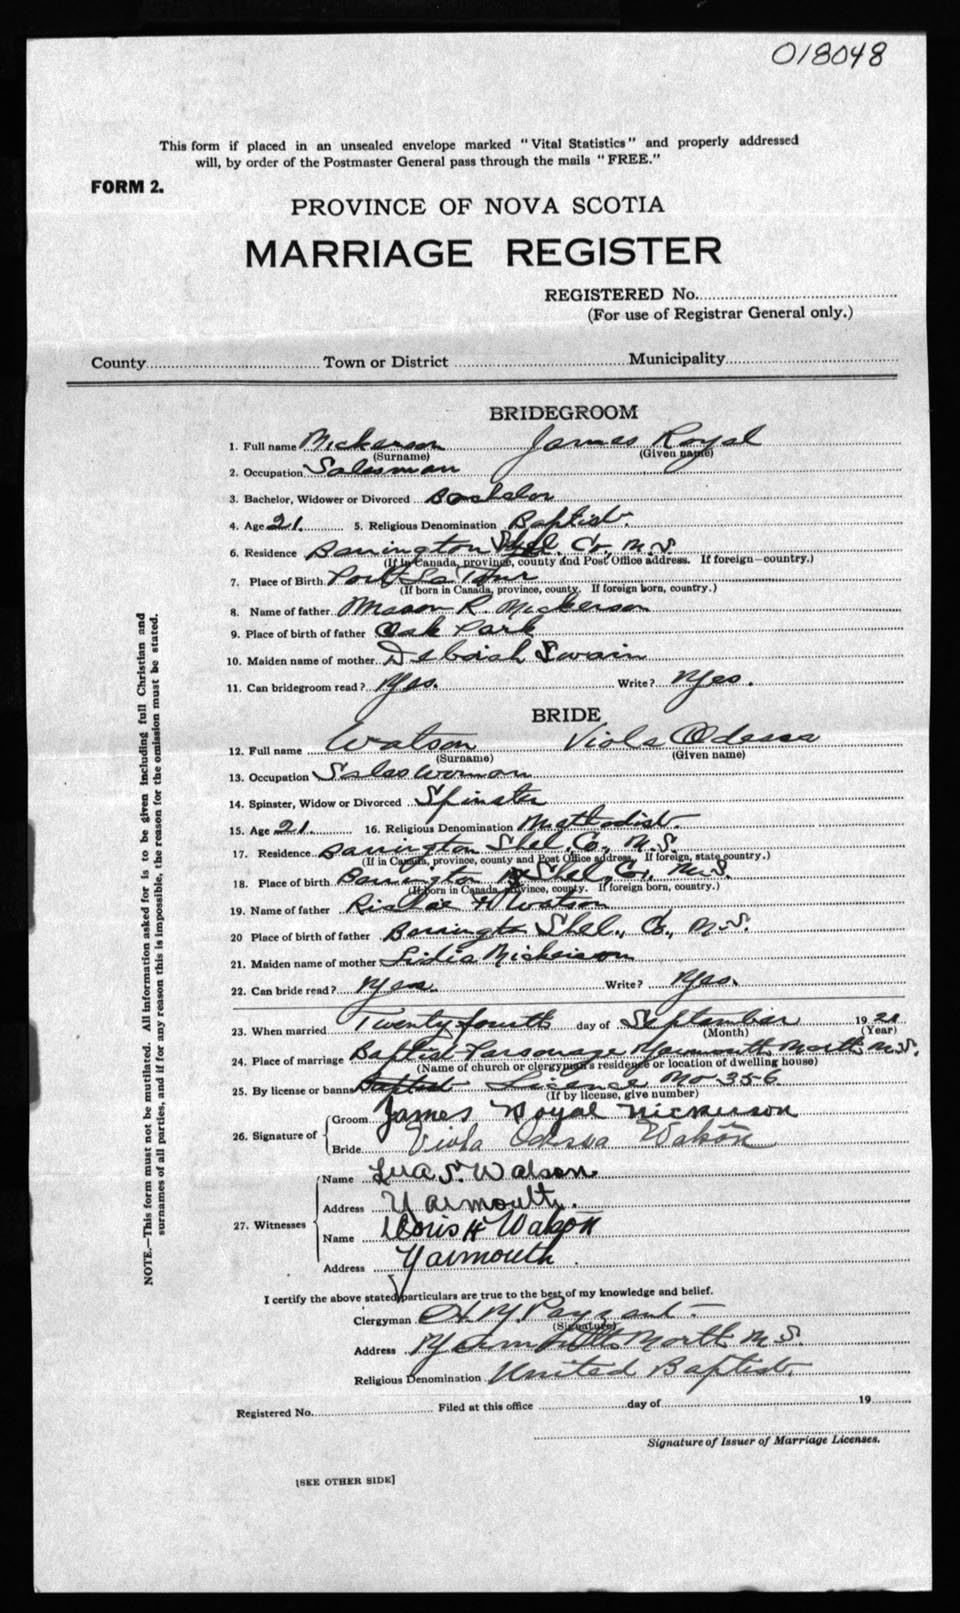 018048
This form if placed in an unsealed envelope marked "Vital Statistics" and properly addressed
will, by order of the Postmaster General pass through the mails "FREE."
FORM 2.
PROVINCE OF NOVA SCOTIA
MARRIAGE REGISTER
REGISTERED No.
(For use of Registrar General only.)
County Town or District Municipality
BRIDEGROOM
1. Full name Nickerson James Royal
(Surname) (Given name)
2. Occupation Salesman
3. Bachelor, Widower or Divorced Bachelor
4. Age 21. 5. Religious Denomination Baptist.
6. Residence Barrington Shel. Co., N.S.
(If in Canada, province, county and Post Office address. If foreign—country.)
7. Place of Birth Port La Tour
(If born in Canada, province, county. If foreign born, country.)
8. Name of father Mason R. Nickerson
9. Place of birth of father Oak Park
10. Maiden name of mother Deborah Swain
11. Can bridegroom read? Yes. Write? Yes.
BRIDE
12. Full name Watson Viola Odessa
(Surname) (Given name)
13. Occupation Saleswoman
14. Spinster, Widow or Divorced Spinster
15. Age 21. 16. Religious Denomination Methodist.
17. Residence Barrington Shel. Co., N.S.
(If in Canada, province, county and Post Office address. If foreign, state country.)
18. Place of birth Barrington Shel. Co., N.S.
(If born in Canada, province, county. If foreign born, country.)
19. Name of father H Watson
20 Place of birth of father Barrington Shel., Co., N.S.
21. Maiden name of mother Lidia Nickerson
22. Can bride read? Yes. Write? Yes.
23. When married Twenty fourth day of September 19
(Month) (Year)
24. Place of marriage Baptist Parsonage Yarmouth North N.S.
(Name of church or clergyman's residence or location of dwelling house)
25. By license or banns Baptist License No 356
(If by license, give number)
26. Signature of
Groom James Royal Nickerson
Bride Viola Odessa Watson
27. Witnesses
Name S. Watson
Address Yarmouth.
Name Doris H Watson
Address Yarmouth.
I certify the above stated particulars are true to the best of my knowledge and belief.
Clergyman Payzant
(Signature)
Address Yarmouth North N.S.
Religious Denomination United Baptist.
Registered No. Filed at this office day of 19
Signature of Issuer of Marriage Licenses.
[SEE OTHER SIDE]
NOTE.—This form must not be mutilated. All information asked for is to be given including full Christian and
surnames of all parties, and if for any reason this is impossible, the reason for the omission must be stated.